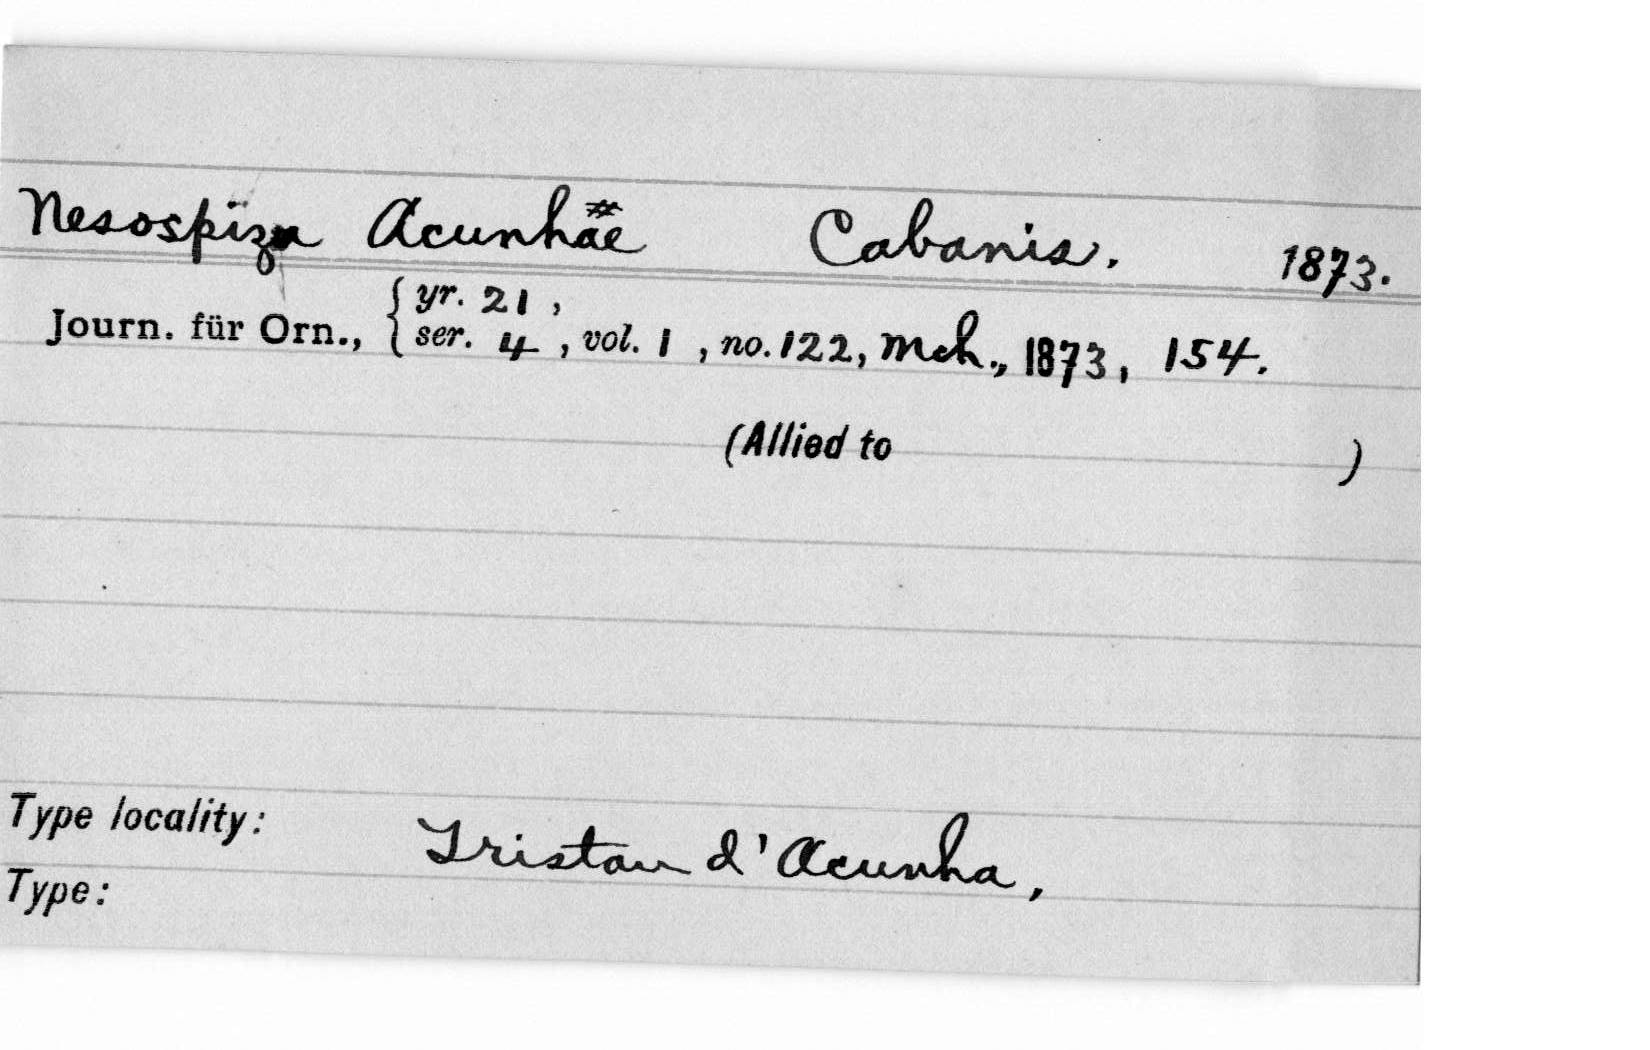 Nesospiza Acunhae Cabanis. 1873.
Journ. für Orn., { yr. 21 ,
ser. 4 , vol. 1 , no. 122, Mch., 1873, 154.
(Allied to )
Type locality: Tristan d'Acunha,
Type: